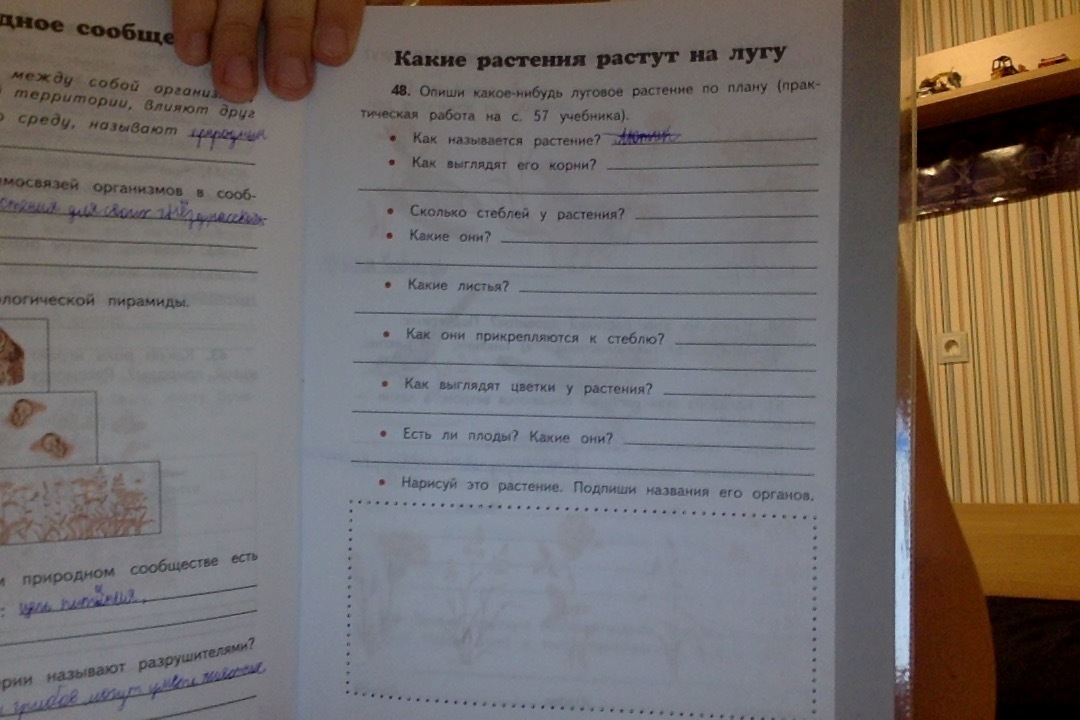 дное сообще
между собой органи
территории, влияют друг
о среду, называют природным
имосвязей организмов в сооб-
ологической пирамиды.
м природном сообществе есть
: цепь питания.
рии называют разрушителями?
Какие растения растут на лугу
48. Опиши какое-нибудь луговое растение по плану (прак-
тическая работа на с. 57 учебника).
• Как называется растение? Лютик
• Как выглядят его корни?
• Сколько стеблей у растения?
• Какие они?
• Какие листья?
• Как они прикрепляются к стеблю?
• Как выглядят цветки у растения?
• Есть ли плоды? Какие они?
• Нарисуй это растение. Подпиши названия его органов.